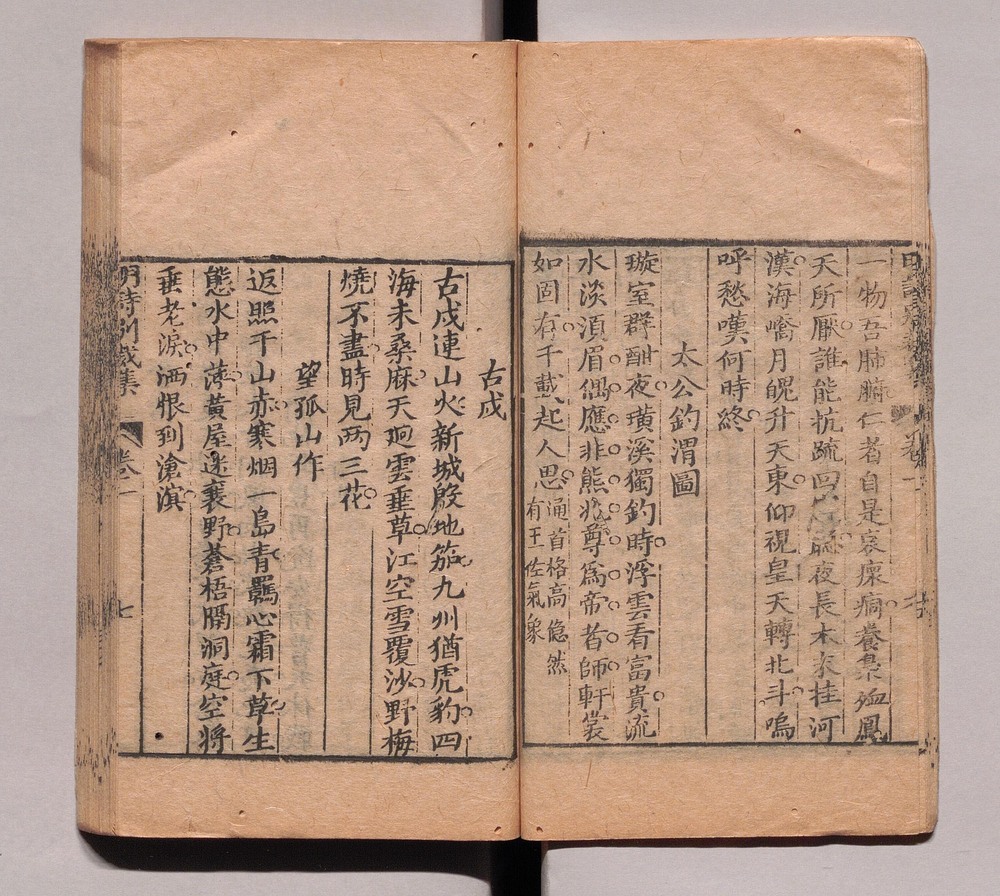 一物吾肺腑仁者自是哀瘝痌養梟殈鳳
天所厭誰能抗疏四 聰夜長木衣挂河
漢海嶠月晛升天東仰視皇天轉北斗嗚
呼愁嘆何時終
太公釣渭圖
璇室群酣夜璜溪獨釣時浮雲看富貴流
水淡湏眉偶應非熊兆尊為帝者師軒裳
如固有千載起人思通首格高隱然
有王佐氣象
古戍
古戍連山火新城殷地笳九州猶虎豹四
海未桑麻天迥雲垂草江空雪覆沙野梅
燒不盡時見两三花
望孤山作
返照千山赤寒烟一島青羈心霜下草生
態水中萍黃屋迷襄野蒼梧隔洞庭空將
垂老淚洒恨到滄溟
明詩別裁集
卷一
七